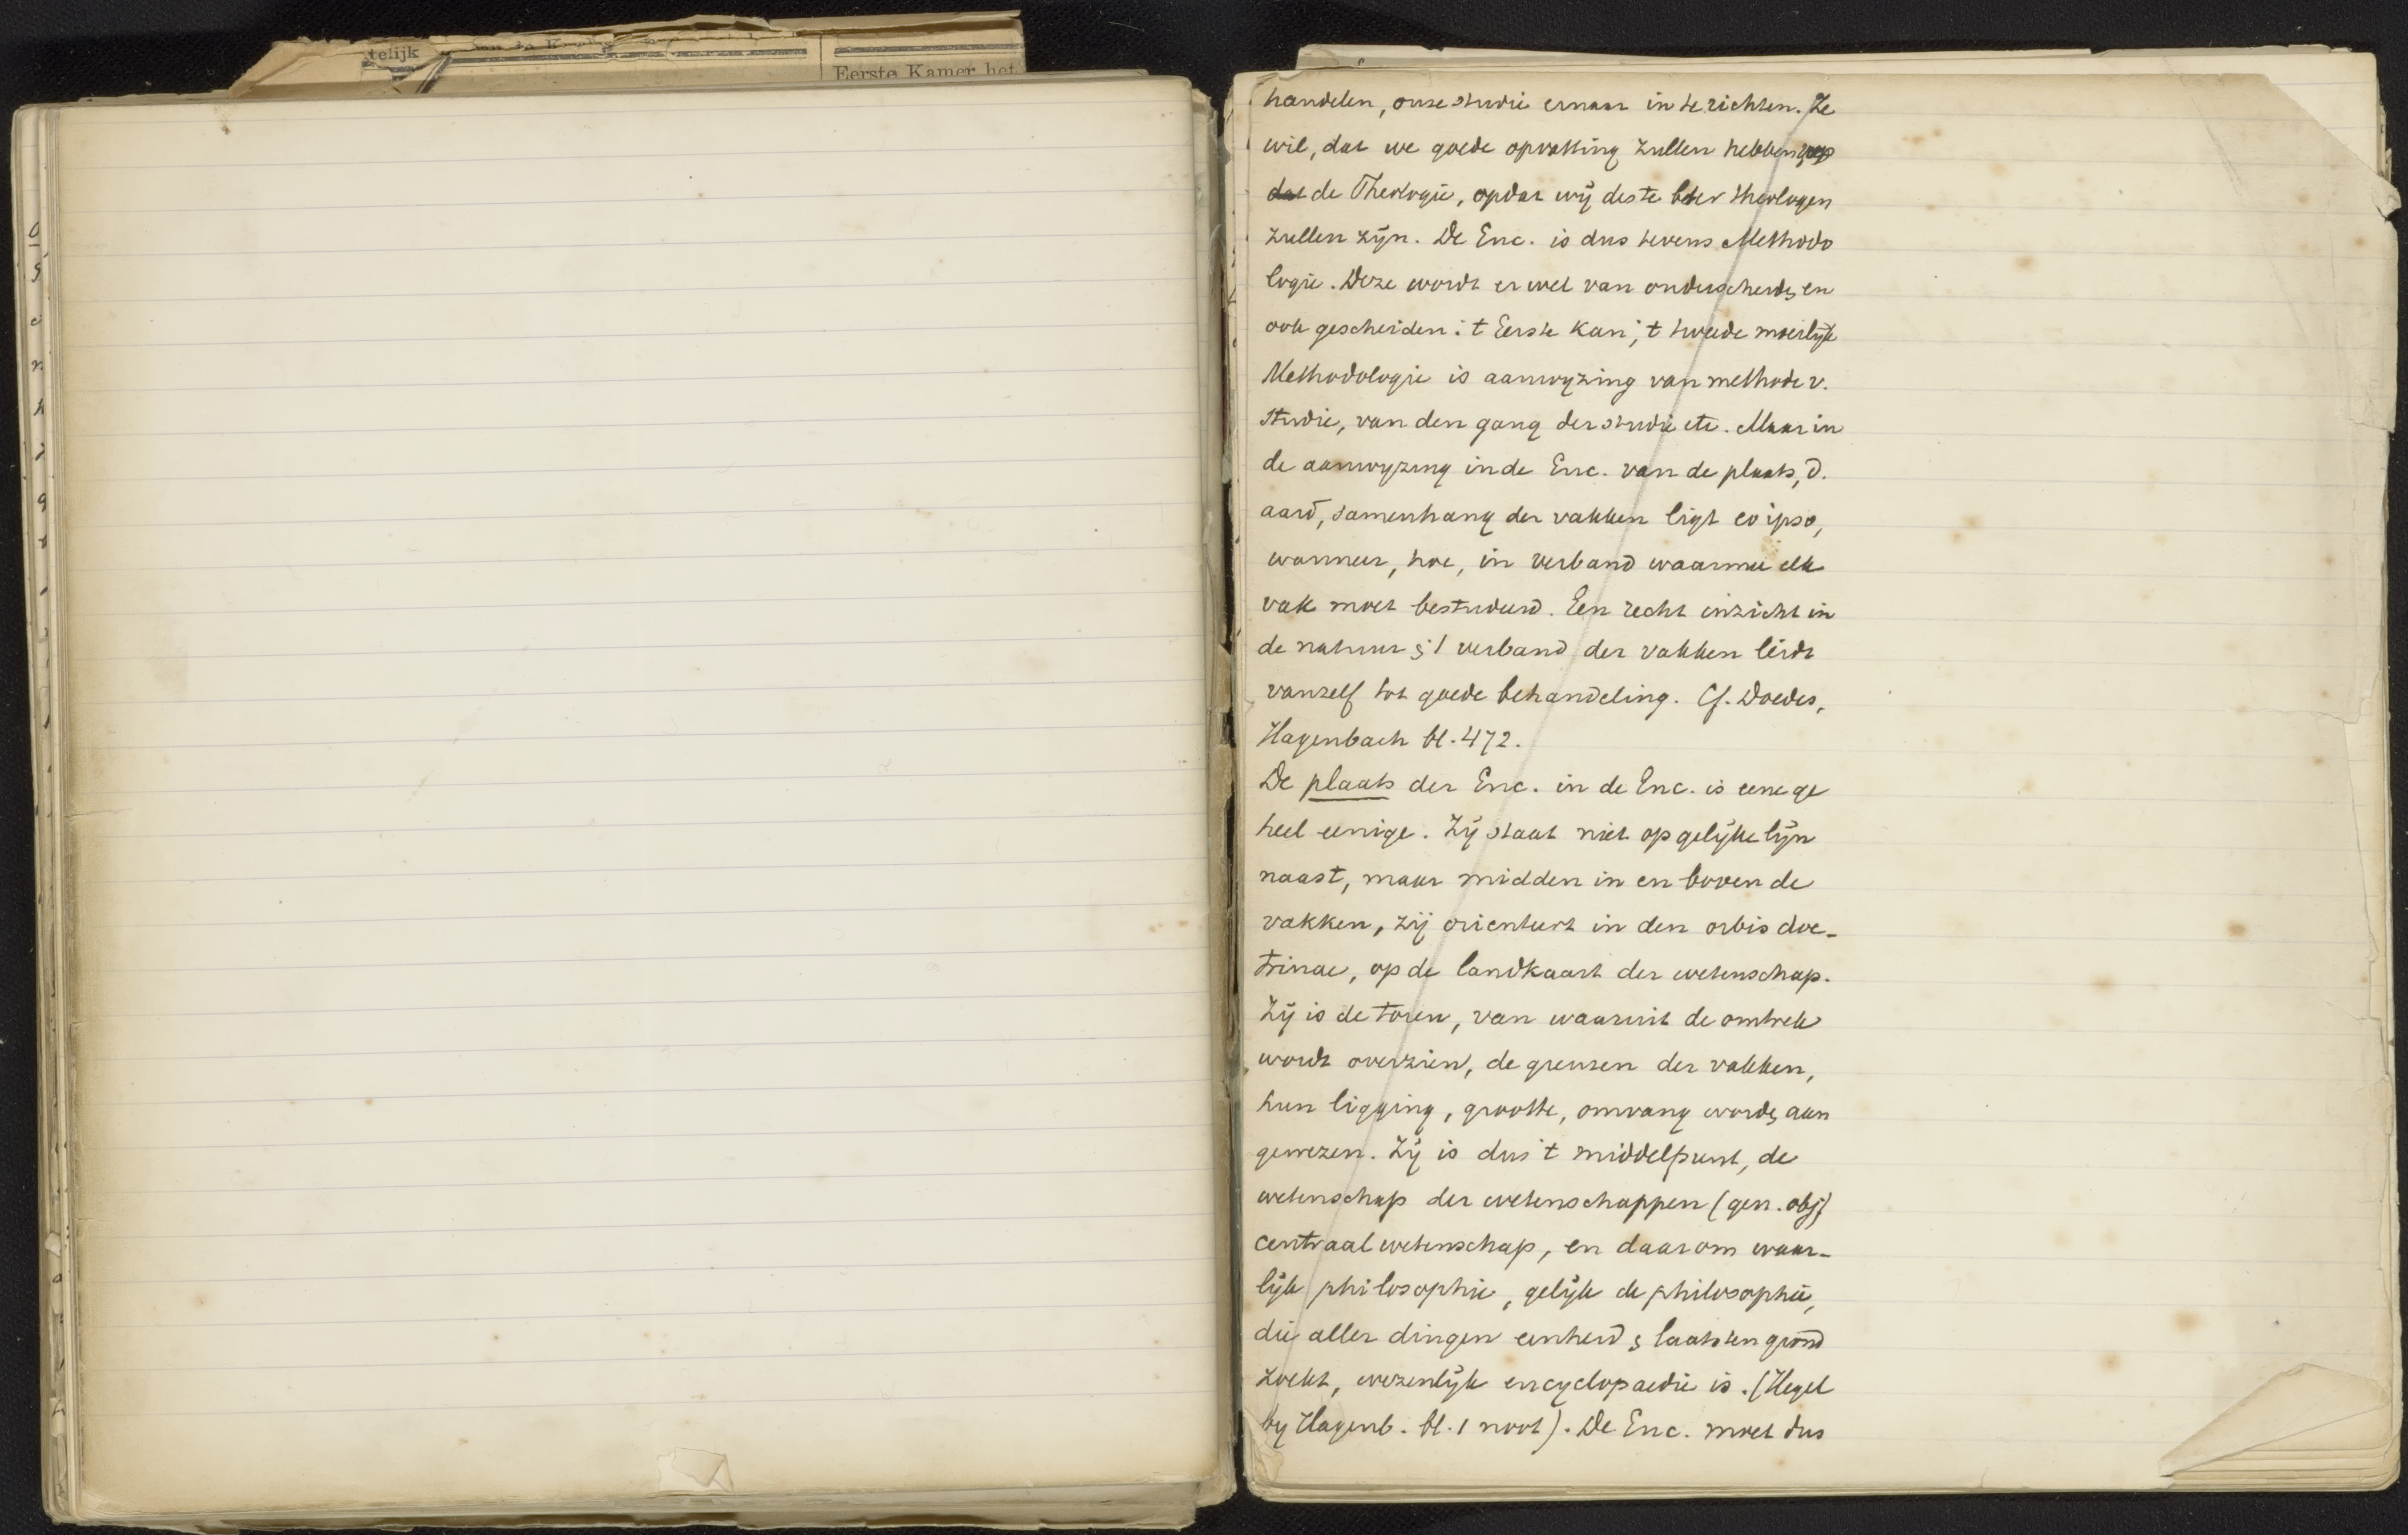 telijk
Eerste Kamer het
handelen, onze studie ernaar in te richten. Ze
wil, dat we goede opvatting zullen hebben
dat de Theologie, opdat wij des te beter theologen
zullen zijn. De Enc. is dus tevens Methodo
logie. Deze wordt er wel van onderscheid, en
ook gescheiden: 't Eerste kan, 't tweede moeilijk
Methodologie is aanwyzing van methode v.
studie, van den gang der studie etc. Maar in
de aanwyzing in de Enc. van de plaats, d.
aard, samenhang der vakken ligt eo ipso,
wanneer, hoe, in verband waarmee elk
vak moet bestudeerd. Een recht inzicht in
de natuur & 't verband der vakken leidt
vanzelf tot goede behandeling. Cf. Doedes,
Hagenbach bl. 472.
De plaats der Enc. in de Enc. is eene ge
heel eenige. Zij staat niet op gelijke lijn
naast, maar midden in en boven de
vakken, zij orienteert in den orbis doc-
trinae, op de landkaart der wetenschap.
Zij is de toren, van waaruit de omtrek
wordt overzien, de grenzen der vakken,
hun ligging, grootte, omvang word, aan
gewezen. Zij is dus 't middelpunt, de
wetenschap der wetenschappen (gen. obj)
centraal wetenschap, en daarom waar-
lijk philosophie, gelijk de philosophie,
die aller dingen eenheid & laatsten grond
zoekt, wezenlijk encyclopaedie is. (Hegel
by Hagenb. bl. 1 noot). De Enc. moet dus